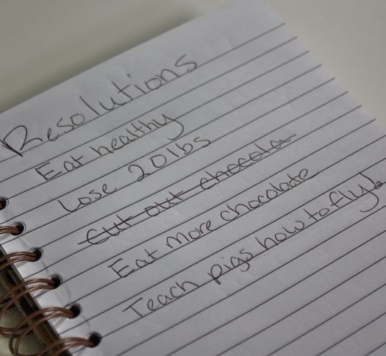 Resolutions
Eat healthy
Lose 20lbs
Cut out chocola
Eat more chocolate
Teach pigs how to fly!